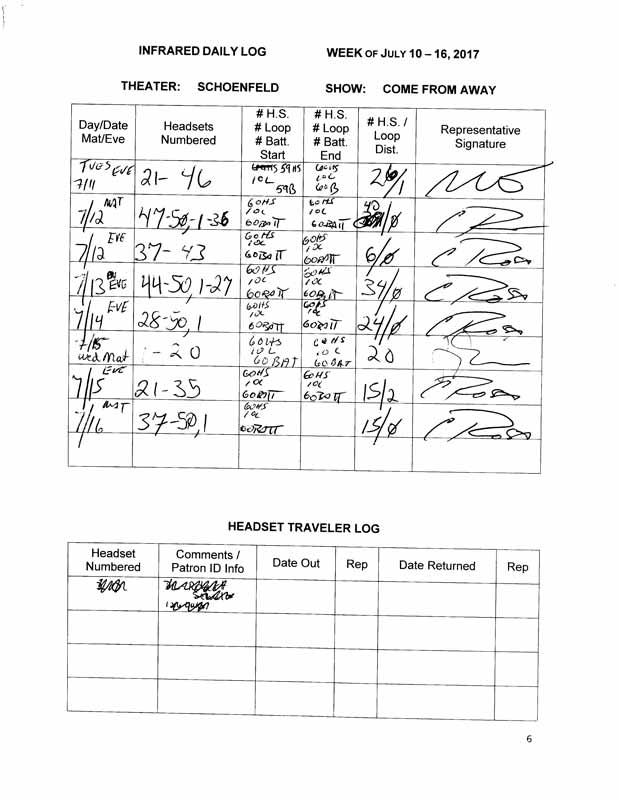 INFRARED DAILY LOG WEEK OF JULY 10 – 16, 2017
THEATER: SCHOENFELD SHOW: COME FROM AWAY
Day/Date Mat/Eve
Headsets Numbered
# H.S. # Loop # Batt. Start
# H.S. # Loop # Batt. End
# H.S. / Loop Dist.
Representative Signature
TUES EVE 7/11 21- 46 59HS 10L 59B 10L 60B
7/12 MAT 47-50,-1-36 60HS 10L 60BATT 60HS 10L 60BATT 40 /0
7/12 EVE 37- 43 60HS 10L 60BATT 60HS 10L 60BATT 6/0
7/13 EVE 44-50,1-27 60HS 10L 60BATT 60HS 10L 60BATT 34/0
7/14 EVE 28-50,1 60HS 10L 60BATT 60HS 10L 60BATT 24/0
7/15 wed Mat 1 - 20 60HS 10L 60BAT 60HS 10L 60BAT 20
7/15 EVE 21-35 60HS 10L 60BATT 60HS 10L 60BATT 15/2
7/16 MAT 37-50,1 60HS 10L 60BATT 15/0
HEADSET TRAVELER LOG
Headset Numbered
Comments / Patron ID Info
Date Out
Rep
Date Returned
Rep
6